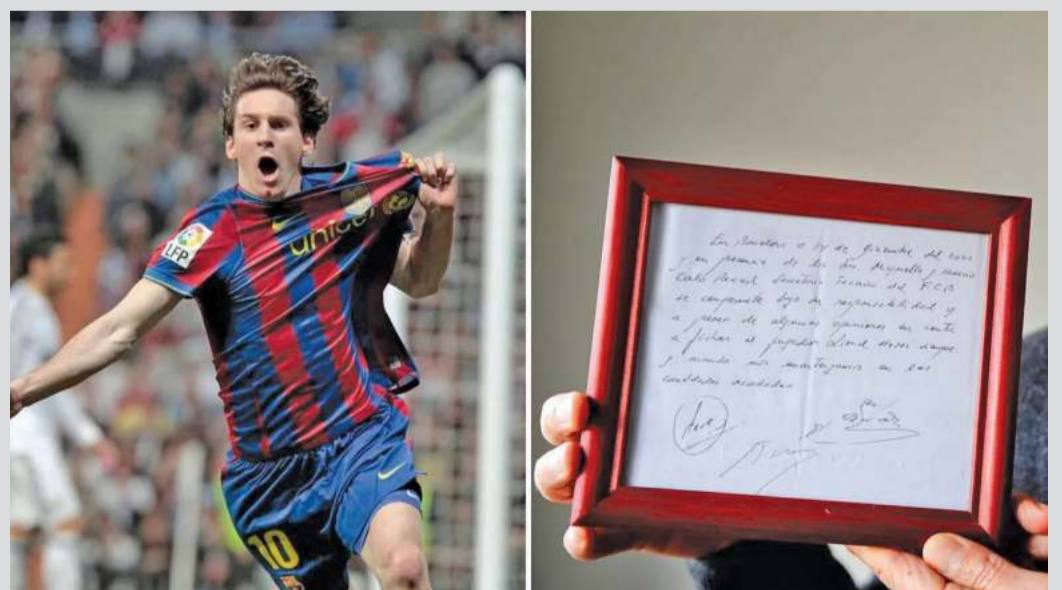 LFP
unicef
10
En Barcelona a 14 de Diciembre del 2000
y en presencia de los Minguella y Horacio
Carlos Rexach Secretario Tecnico del F.C.B
se compromete bajo su responsabilidad y
a pesar de algunas opiniones en contra
a fichar al jugador Lionel Messi siempre
y cuando nos mantengamos en las
cantidades acordadas